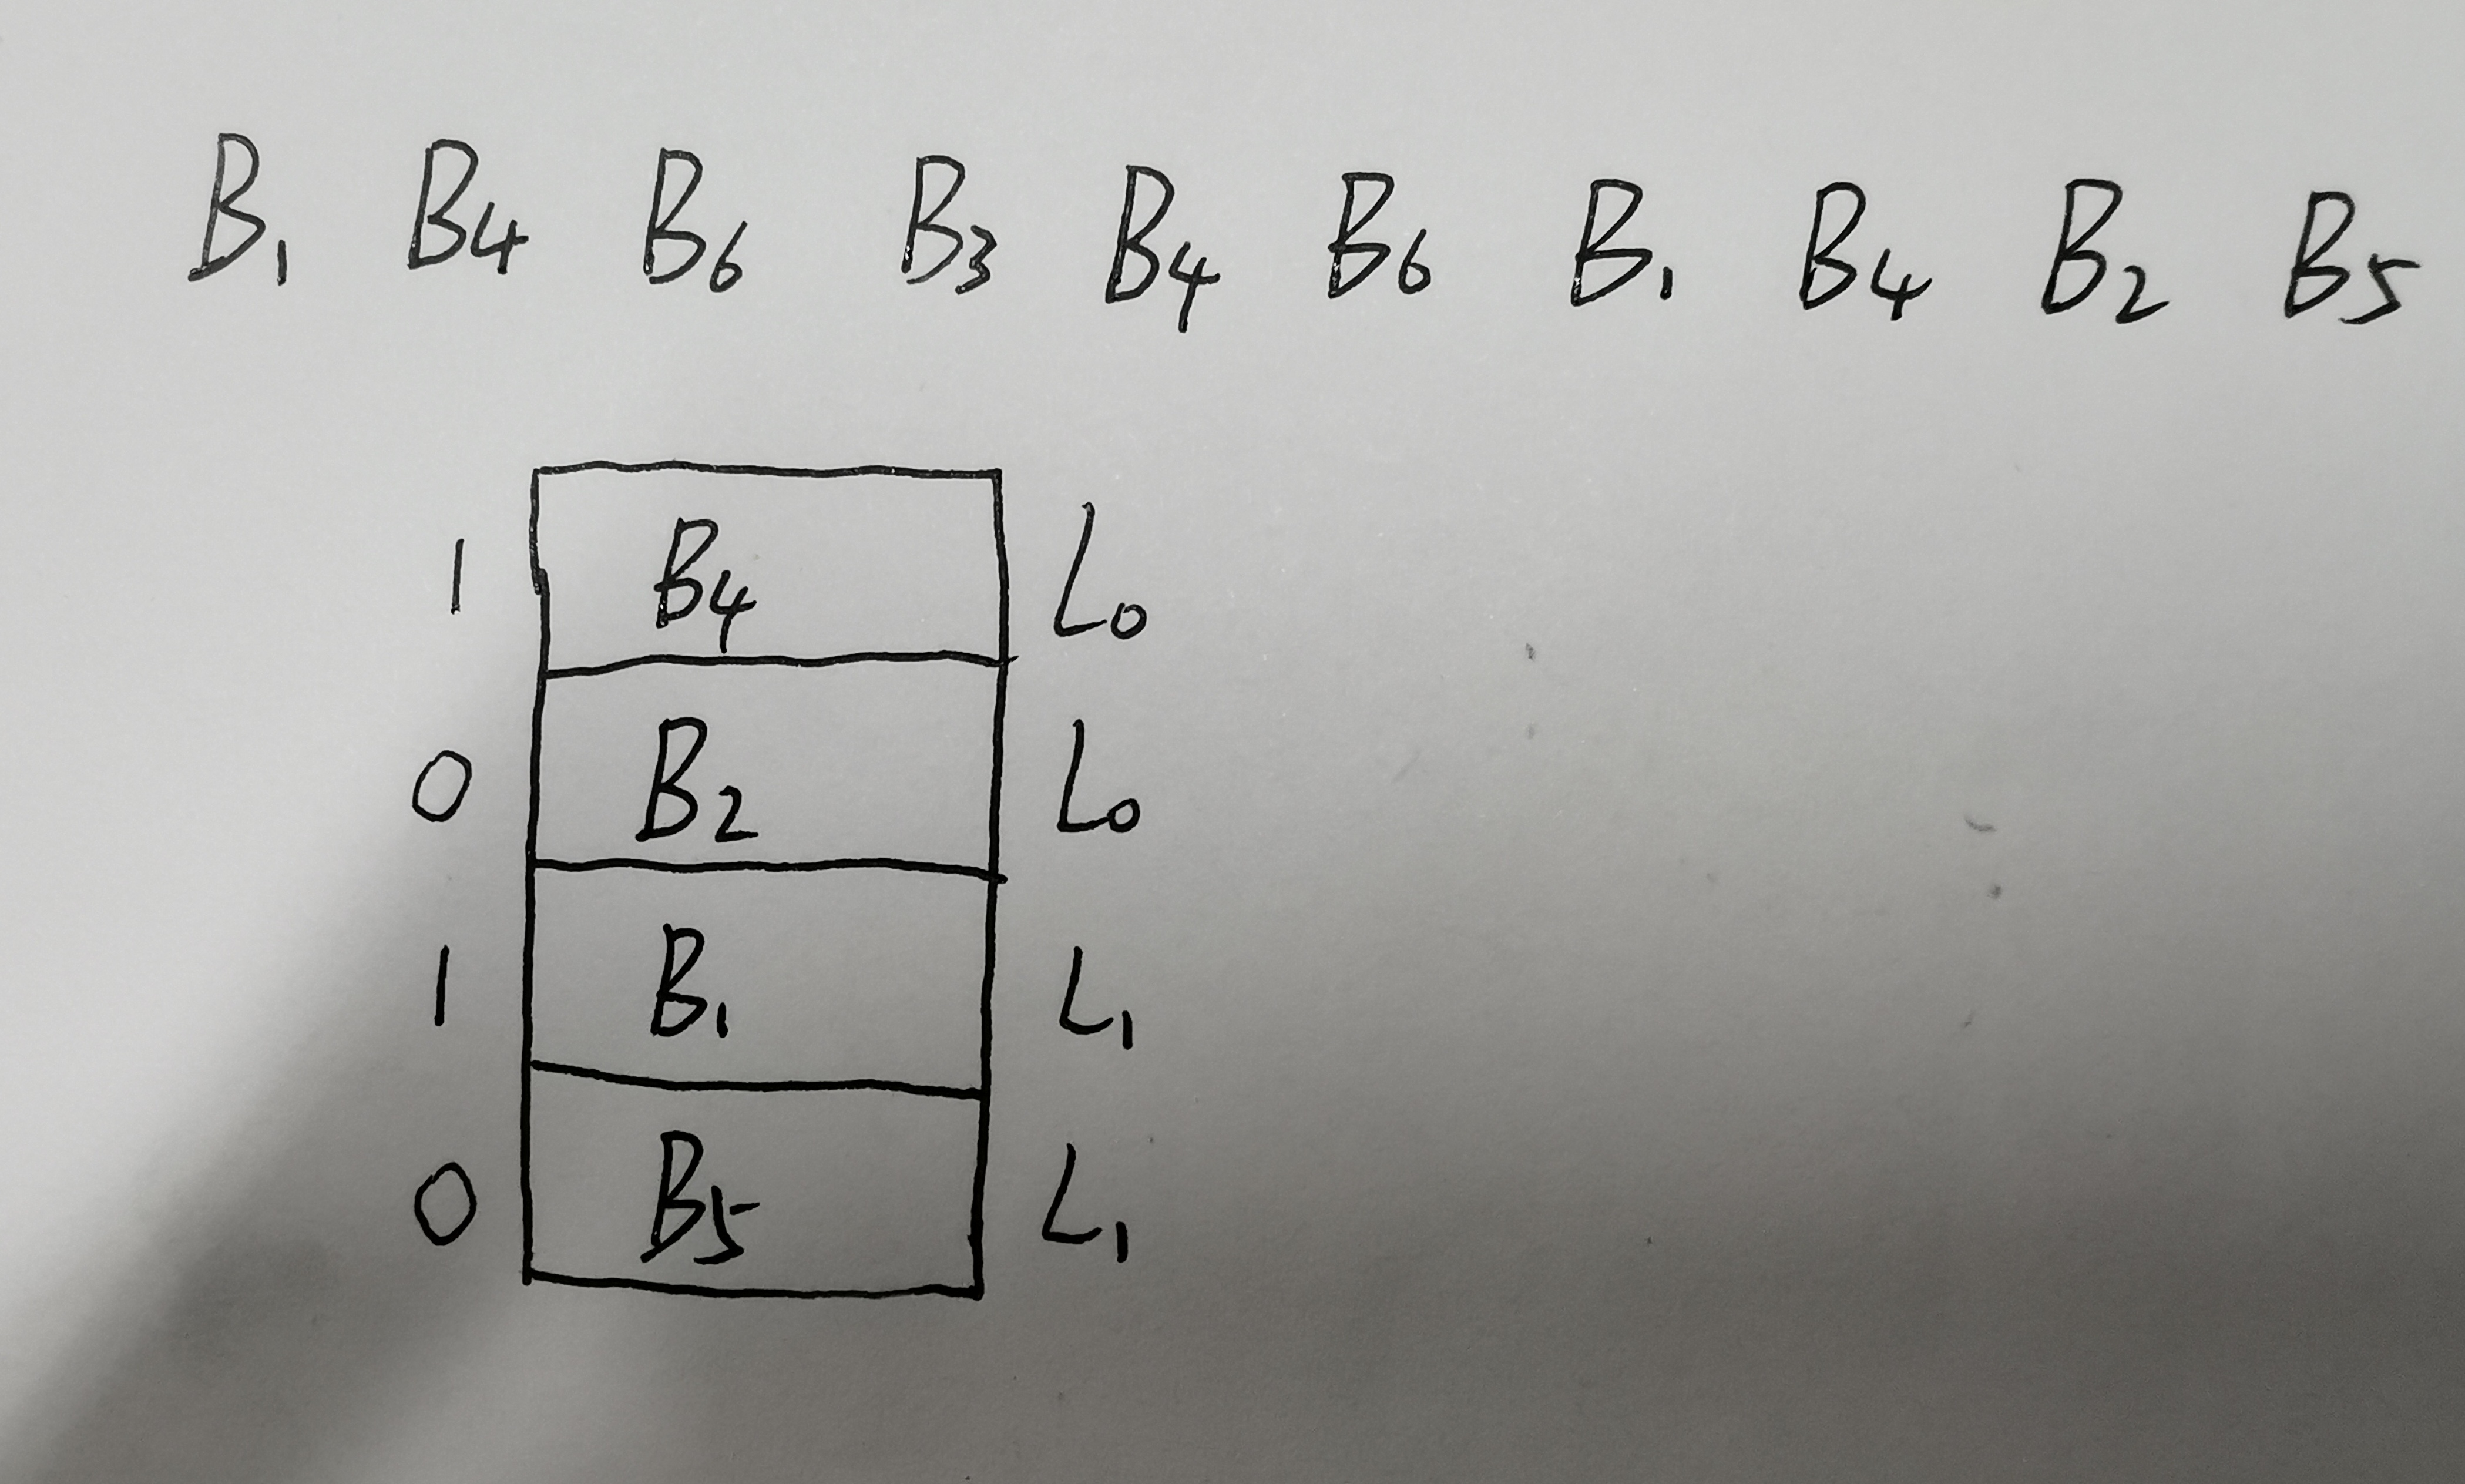 B₁ B₄ B₆ B₃ B₄ B₆ B₁ B₄ B₂ B₅
1 B₄ L₀
0 B₂ L₀
1 B₁ L₁
0 B₅ L₁